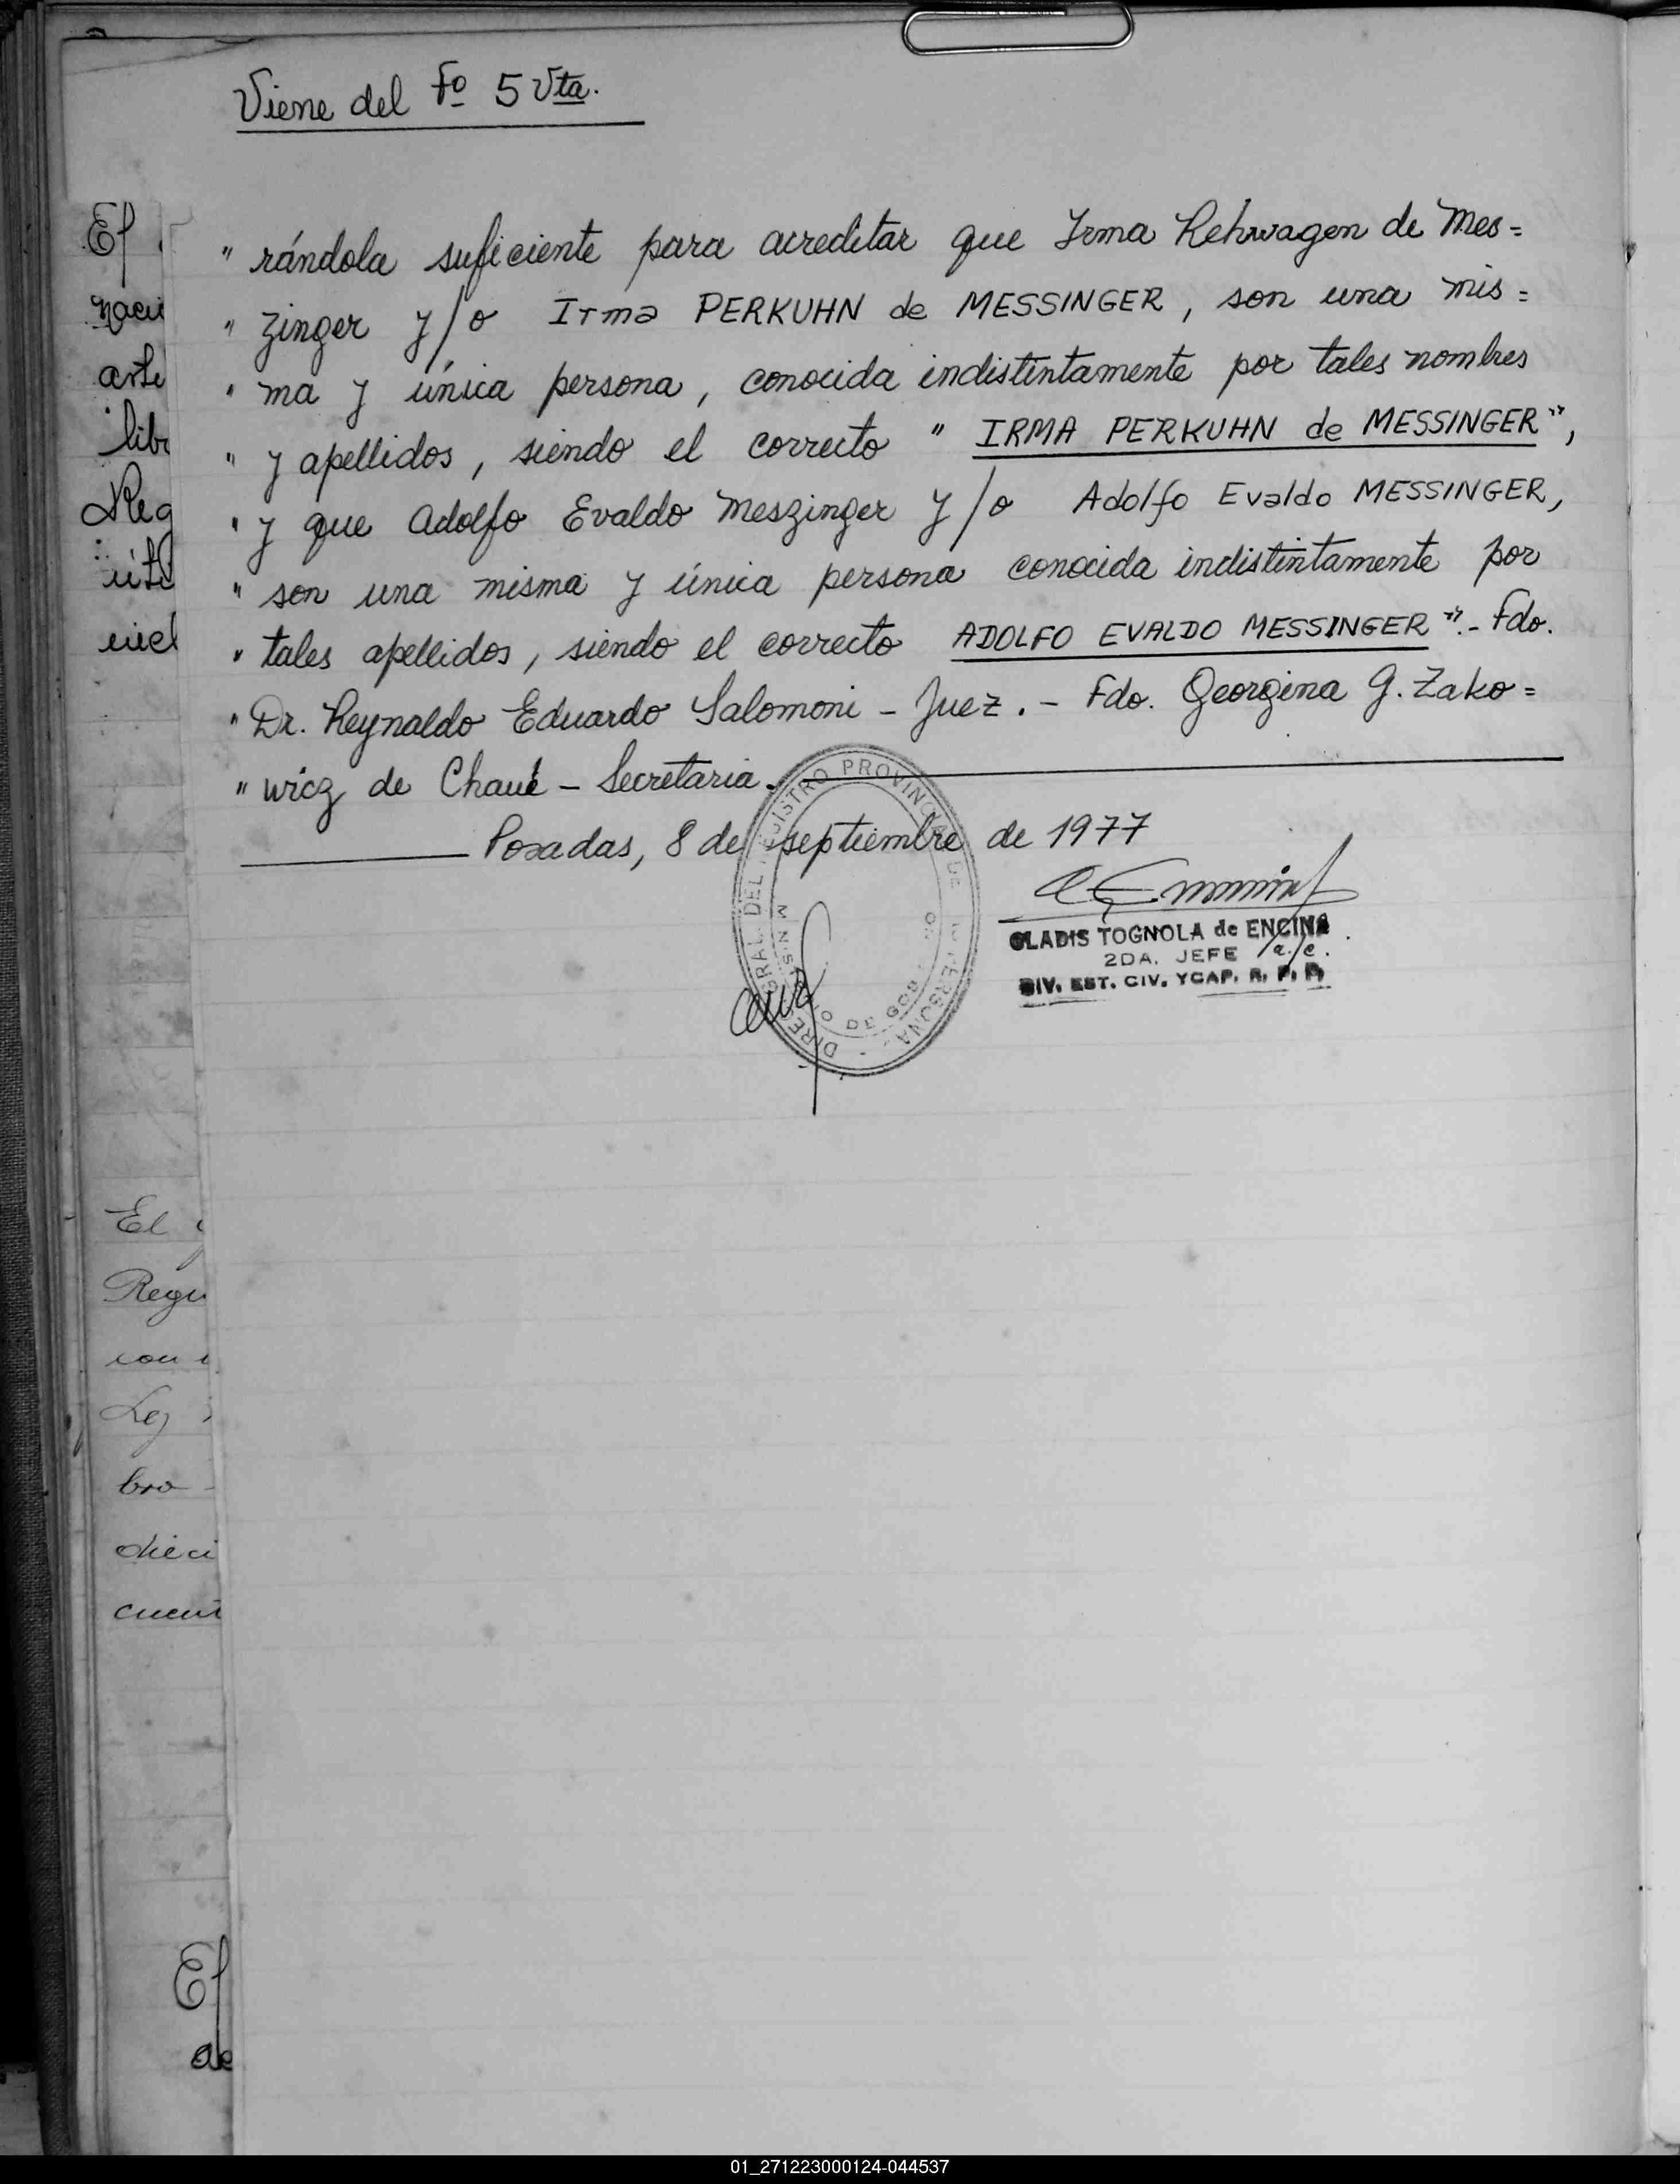 Viene del Fº 5 Vta.
" rándola suficiente para acreditar que Irma Rehwagen de Mes=
" zinger y/o Irma PERKUHN de MESSINGER, son una mis=
" ma y única persona, conocida indistintamente por tales nombres
" y apellidos, siendo el correcto " IRMA PERKUHN de MESSINGER",
" y que Adolfo Evaldo Meszinger y/o Adolfo Evaldo MESSINGER,
" son una misma y única persona conocida indistintamente por
" tales apellidos, siendo el correcto ADOLFO EVALDO MESSINGER".- Fdo.
" Dr. Reynaldo Eduardo Salomoni - Juez.- Fdo. Georgina G. Zako=
" wicz de Chaué - Secretaria.
Posadas, 8 de septiembre de 1977
GLADIS TOGNOLA de ENCINA
2DA. JEFE a/c.
DIV. EST. CIV. YCAP. R. P. P.
El
naci
arti
libr
Reg
El
Regi
con
Ley
bro
dieci
cuent
El
de
01_271223000124-044537